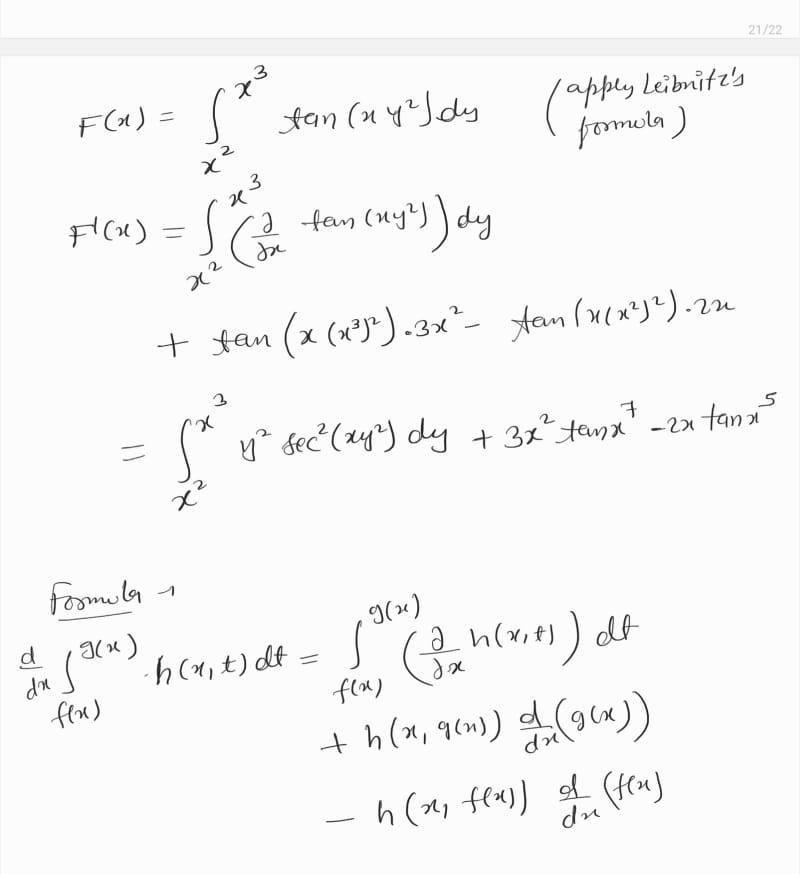 21/22
F(x) = ∫_{x²}^{x³} tan(xy²)dy (apply Leibnitz's formula)
F'(x) = ∫_{x²}^{x³} (∂/∂x tan(xy²))dy
+ tan(x(x³)²).3x² - tan(x(x²)²).2x
= ∫_{x²}^{x³} y² sec²(xy²) dy + 3x² tanx⁷ - 2x tanx⁵
Formula →
d/dx ∫_{f(x)}^{g(x)} h(x,t)dt = ∫_{f(x)}^{g(x)} (∂/∂x h(x,t)) dt
+ h(x, g(x)) d/dx (g(x))
- h(x, f(x)) d/dx (f(x)